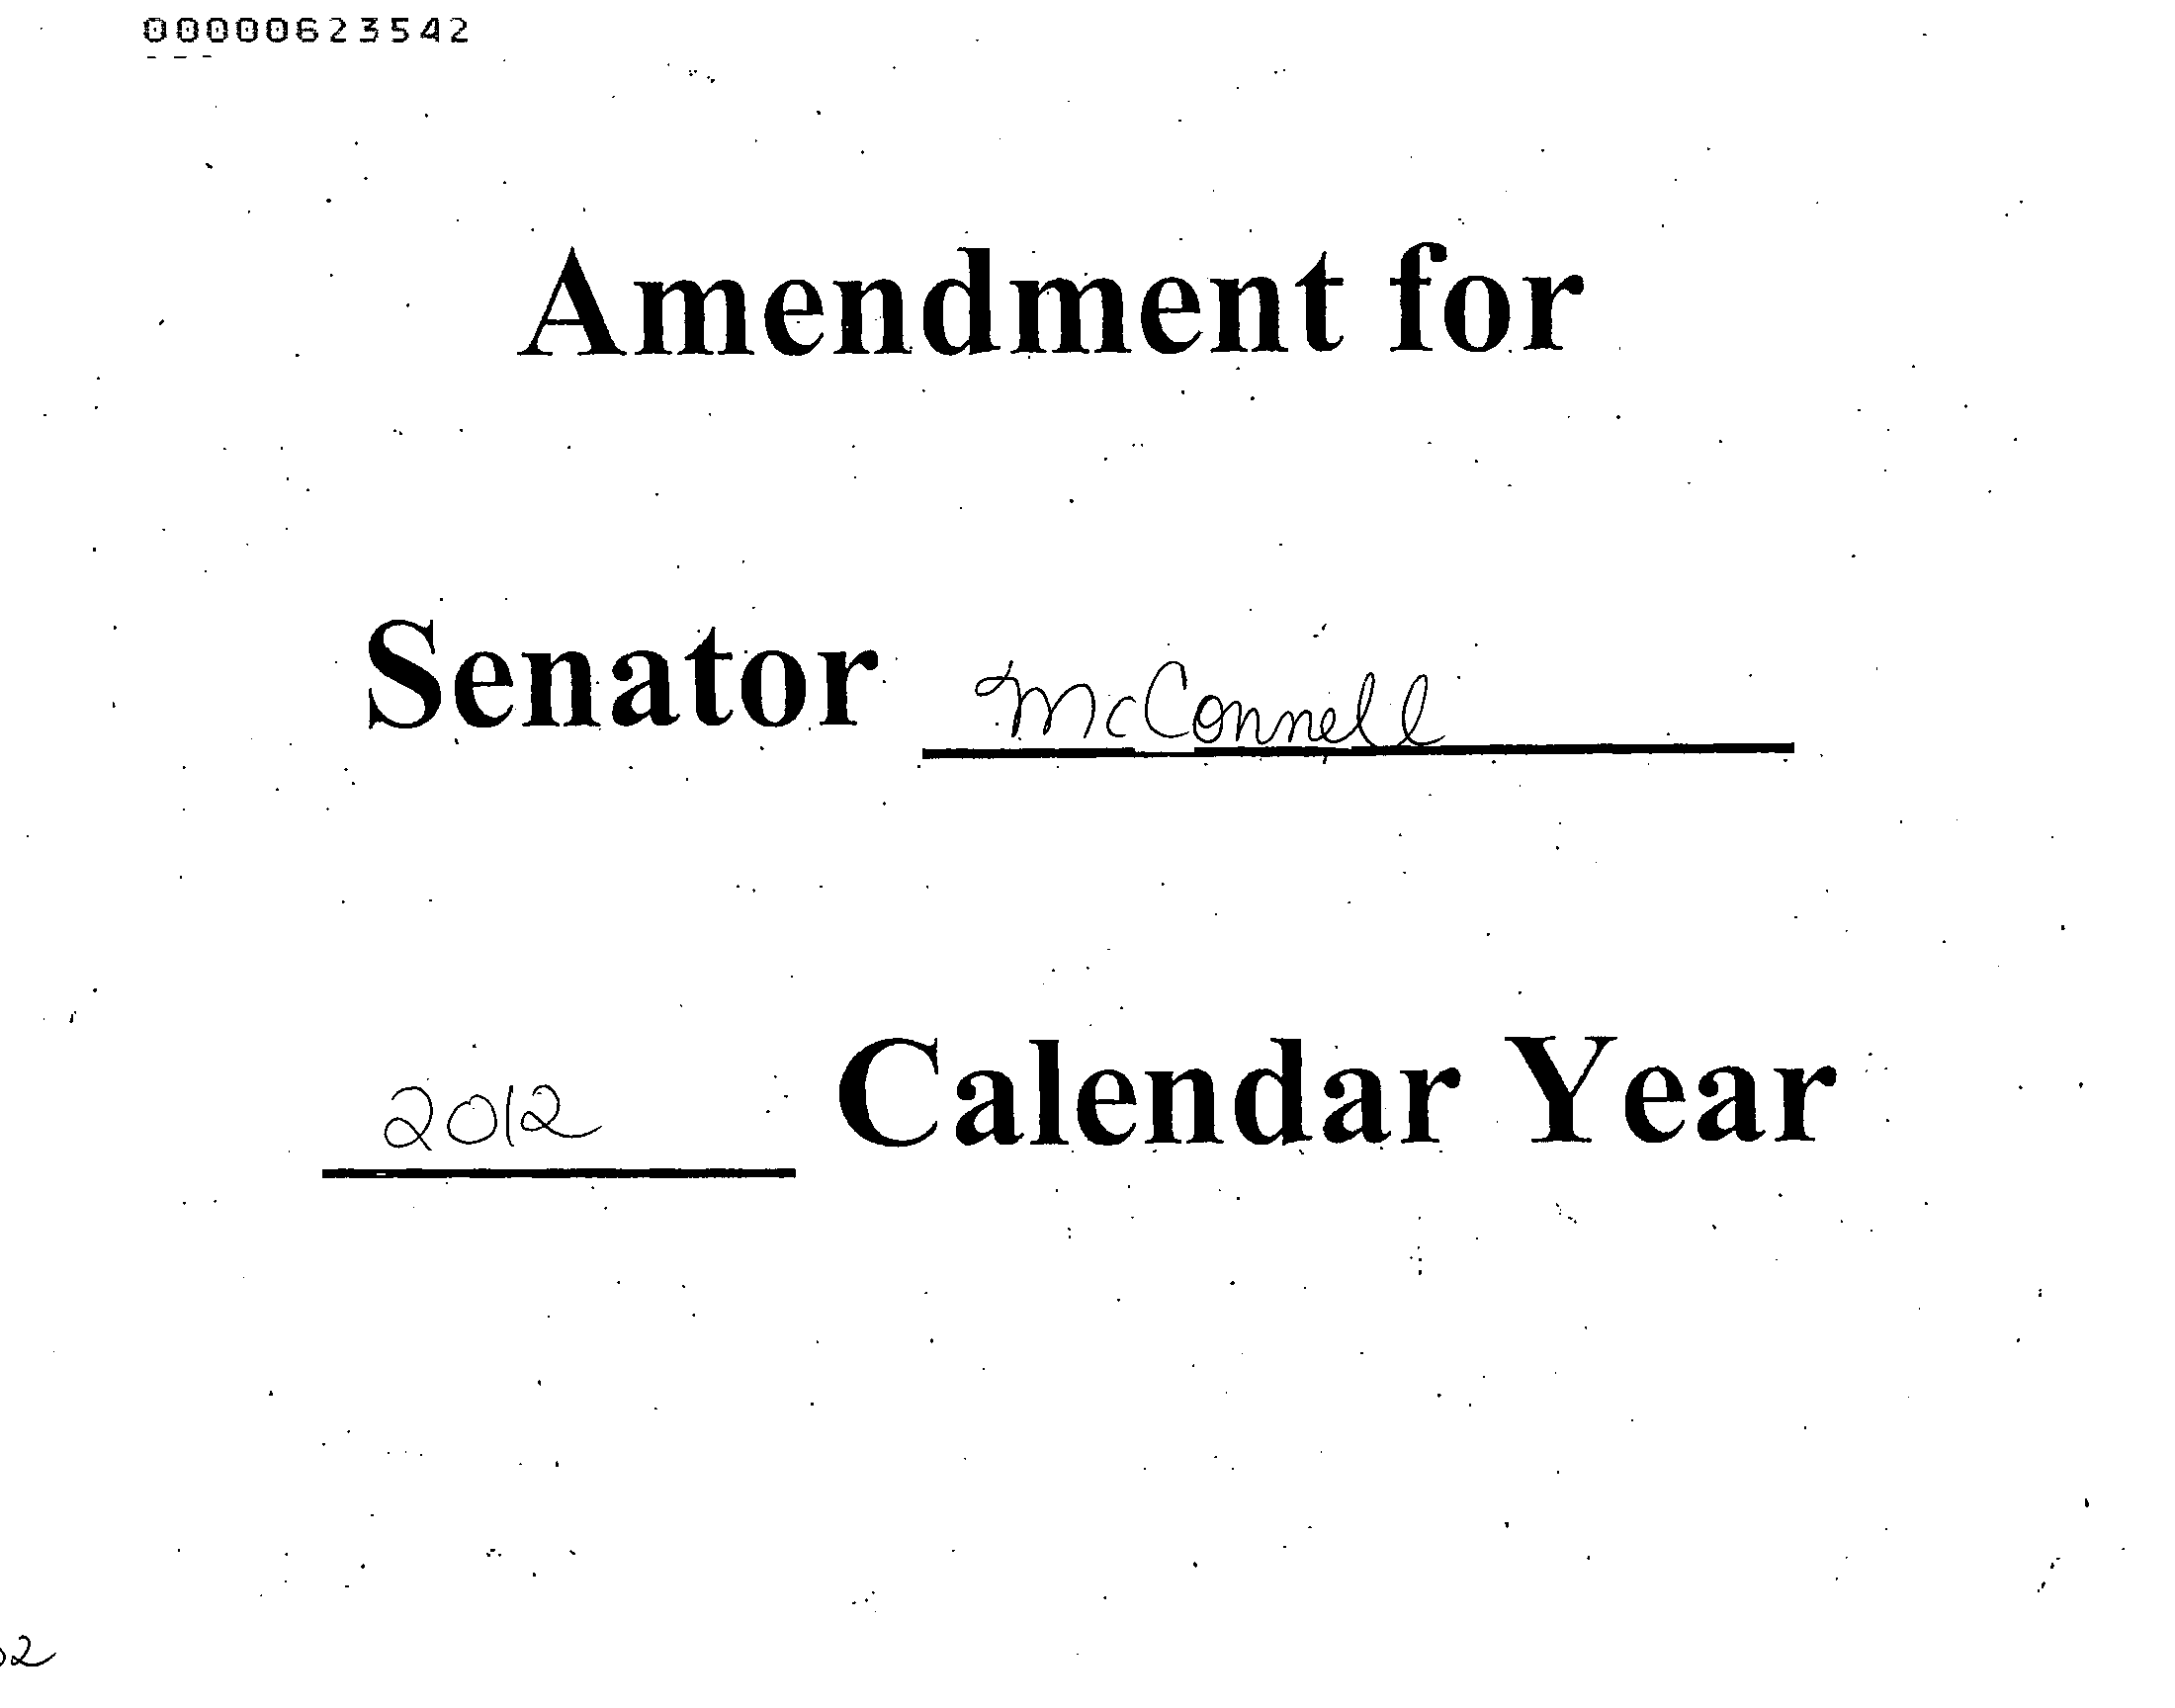 00000623542
Amendment for
Senator McConnell
2012 Calendar Year